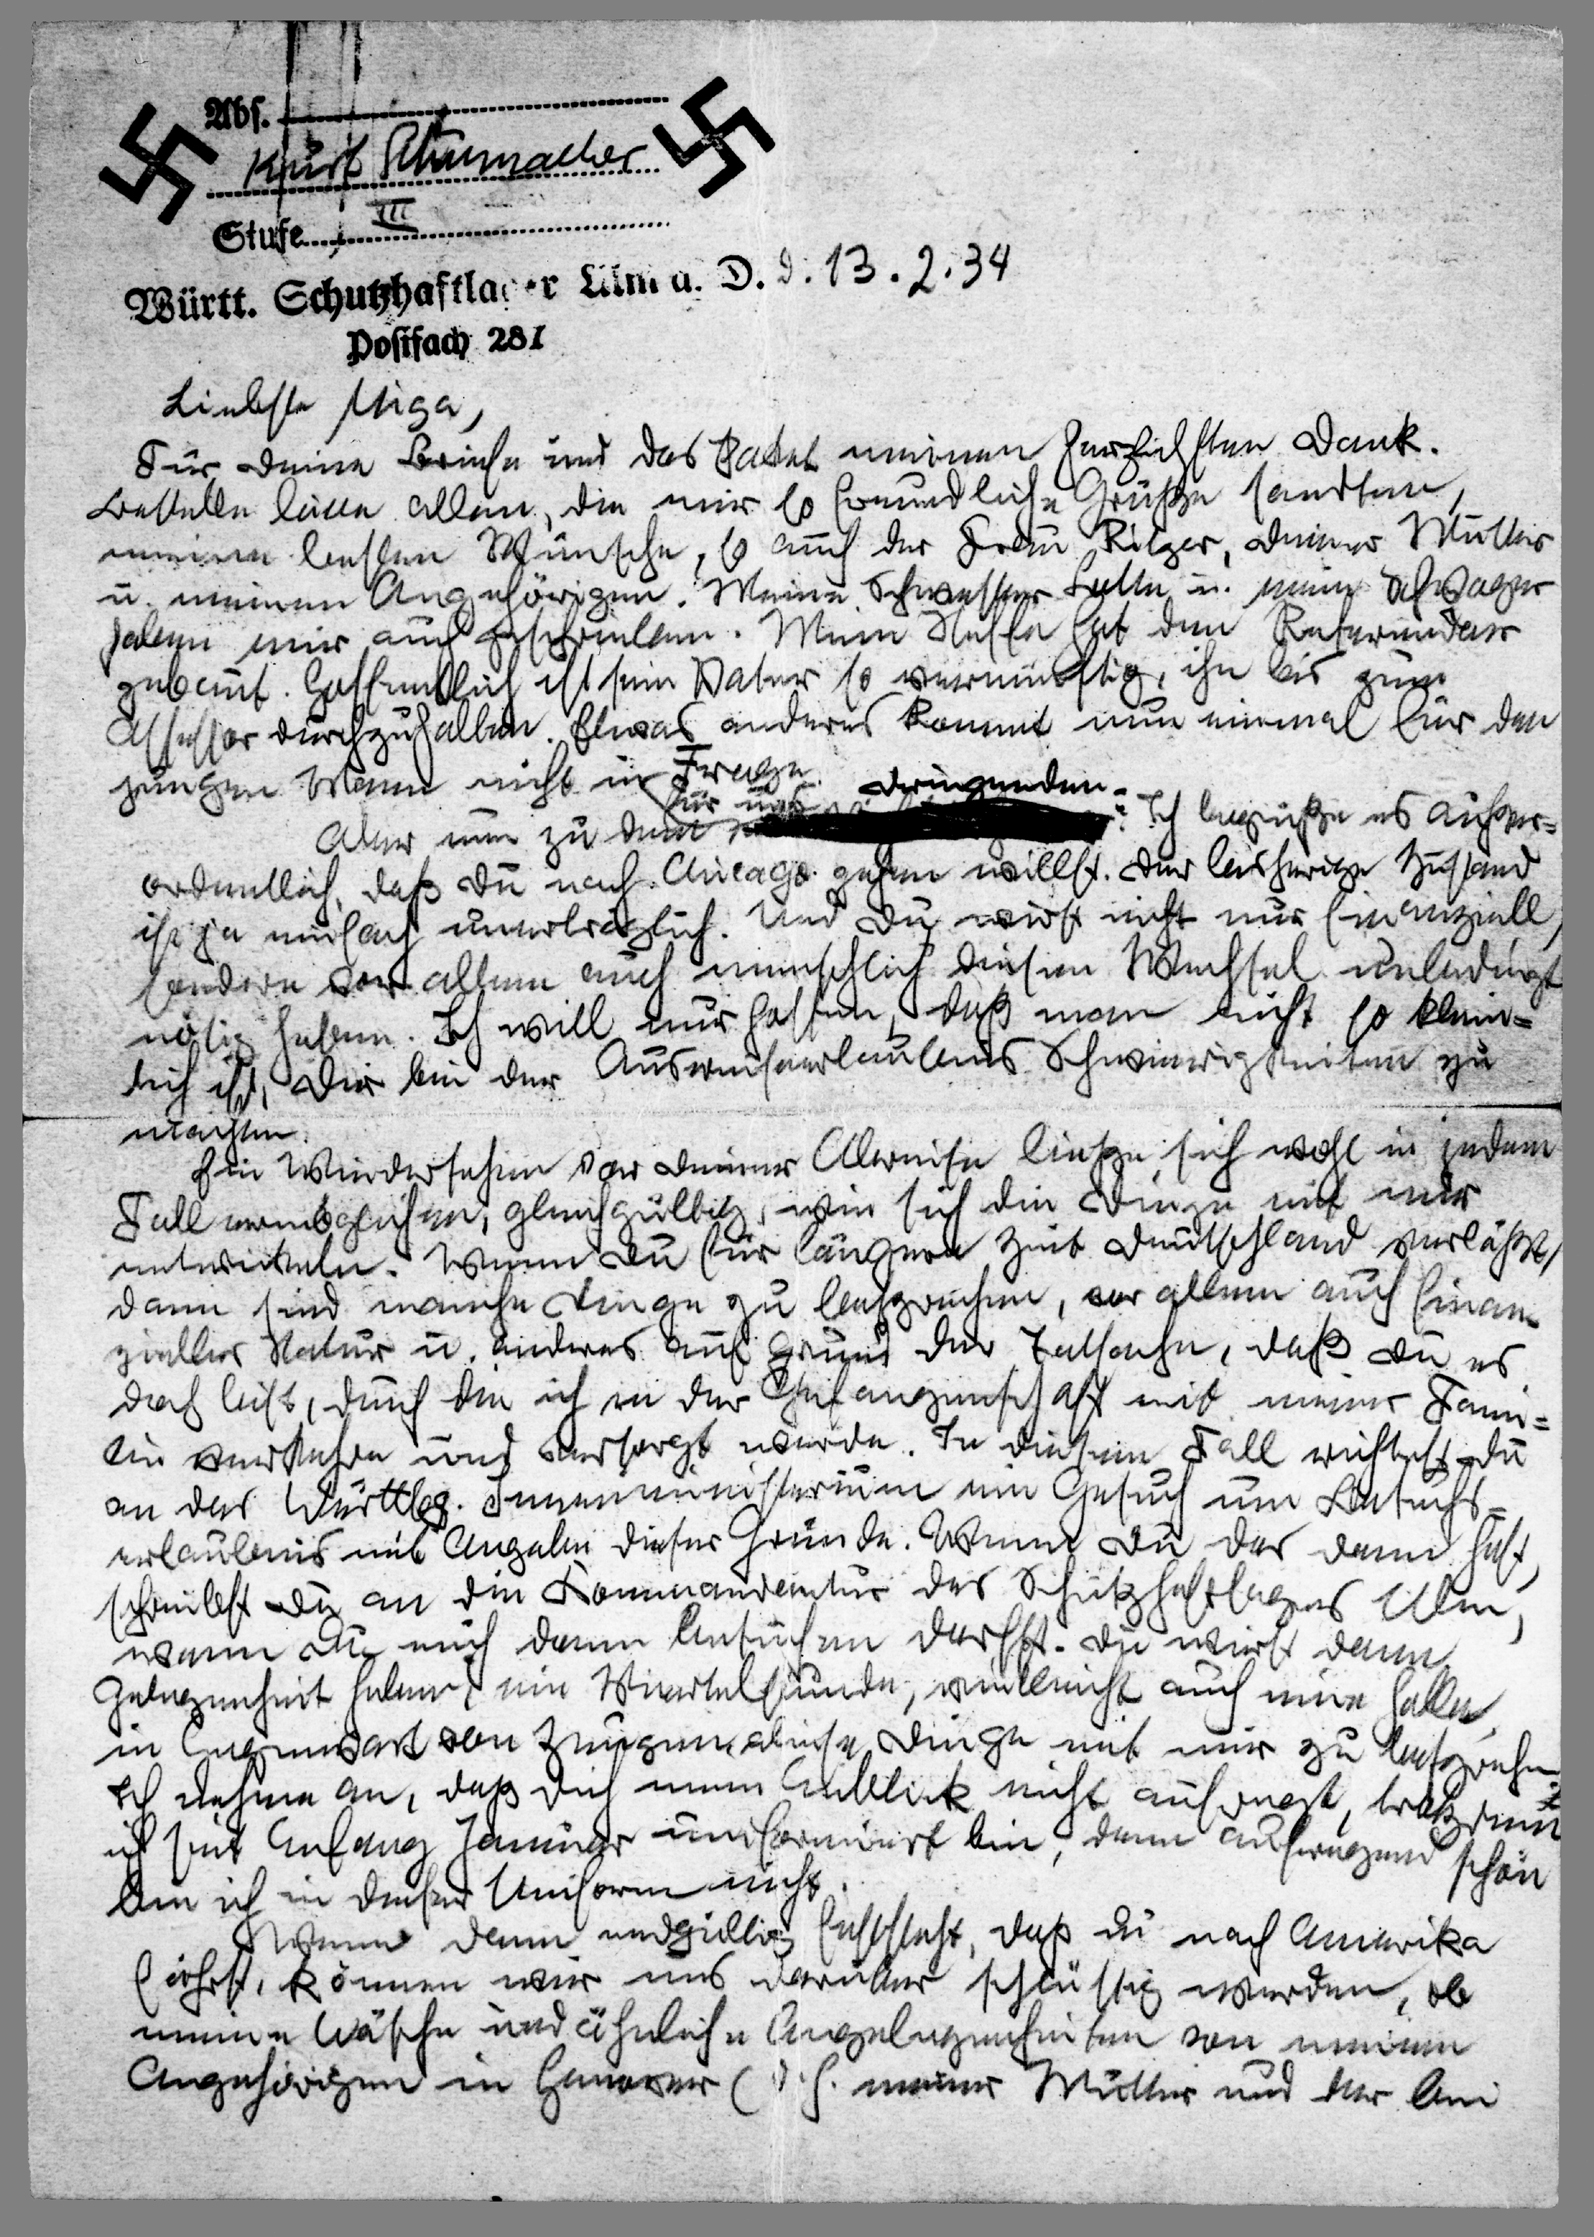 Abs.
Kurt Schumacher
Stufe III
Württ. Schutzhaftlager Ulm a. D. d. 13.2.34
Postfach 281
Liebste Miga,
Für deine Briefe und das Paket meinen herzlichsten Dank.
Bestelle bitte allen, die mir so freundliche Grüße sandten,
meine besten Wünsche, so auch der Frau Ritzer, deiner Mutter
u. meinen Angehörigen. Meine Schwester Lotte u. mein Schwager
haben mir auch geschrieben. Mein Neffe hat den Referendar
gebaut. Hoffentlich ist sein Vater so vernünftig, ihn bis zum
Assessor durchzuhalten. Etwas anderes kommt nun einmal für den
jungen Mann nicht in Frage.
Aber nun zu dem für uns dringenden: Ich begrüße es außer=
ordentlich, daß du nach Chicago gehen willst. Der bisherige Zustand
ist ja einfach unerträglich. Und du wirst nicht nur finanziell,
sondern vor allem auch menschlich diesen Wechsel unbedingt
nötig haben. Ich will nur hoffen, daß man nicht so klein=
lich ist, Dir bei der Ausreiseerlaubnis Schwierigkeiten zu
machen.
Ein Wiedersehen vor deiner Abreise ließe sich wohl in jedem
Fall ermöglichen, gleichgültig, wie sich die Dinge mit mir
entwickeln. Wenn du für längere Zeit Deutschland verläßt,
dann sind manche Dinge zu besprechen, vor allem auch finan-
zieller Natur u. anderes auf Grund der Tatsache, daß du es
doch bist, durch die ich in der Gefangenschaft mit meiner Fami=
lie verkehre und versorgt werde. In diesem Fall richtest du
an das Württbg. Innenministerium ein Gesuch um Besuchs=
erlaubnis mit Angabe dieser Gründe. Wenn du das dann hast,
schreibst du an die Kommandantur des Schutzhaftlagers Ulm,
wann du mich dann besuchen darfst. Du wirst dann
Gelegenheit haben, eine Viertelstunde, vielleicht auch eine halbe,
in Gegenwart von Zeugen, diese Dinge mit mir zu besprechen.
Ich nehme an, daß dich mein Anblick nicht aufregt, trotzdem
ich seit Anfang Januar uniformiert bin, denn aufregend schön
bin ich in dieser Uniform nicht.
Wenn dann endgültig feststeht, daß du nach Amerika
fährst, können wir uns darüber schlüssig werden, ob
meine Wäsche und ähnliche Angelegenheiten von meinen
Angehörigen in Hannover (d.h. meiner Mutter und der bei